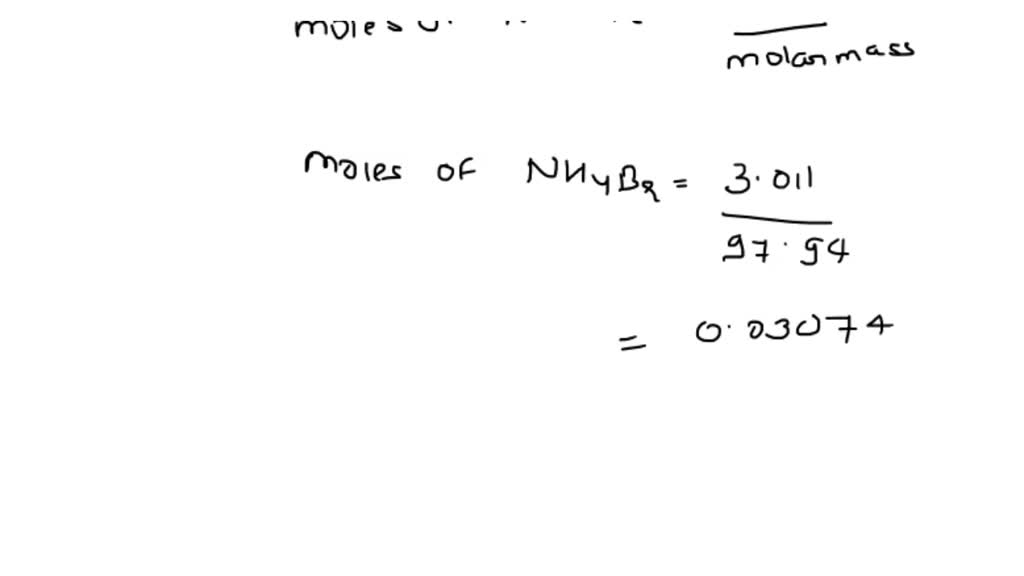 moles of
molar mass
moles of NH4Br = 3.011
97.94
= 0.03074